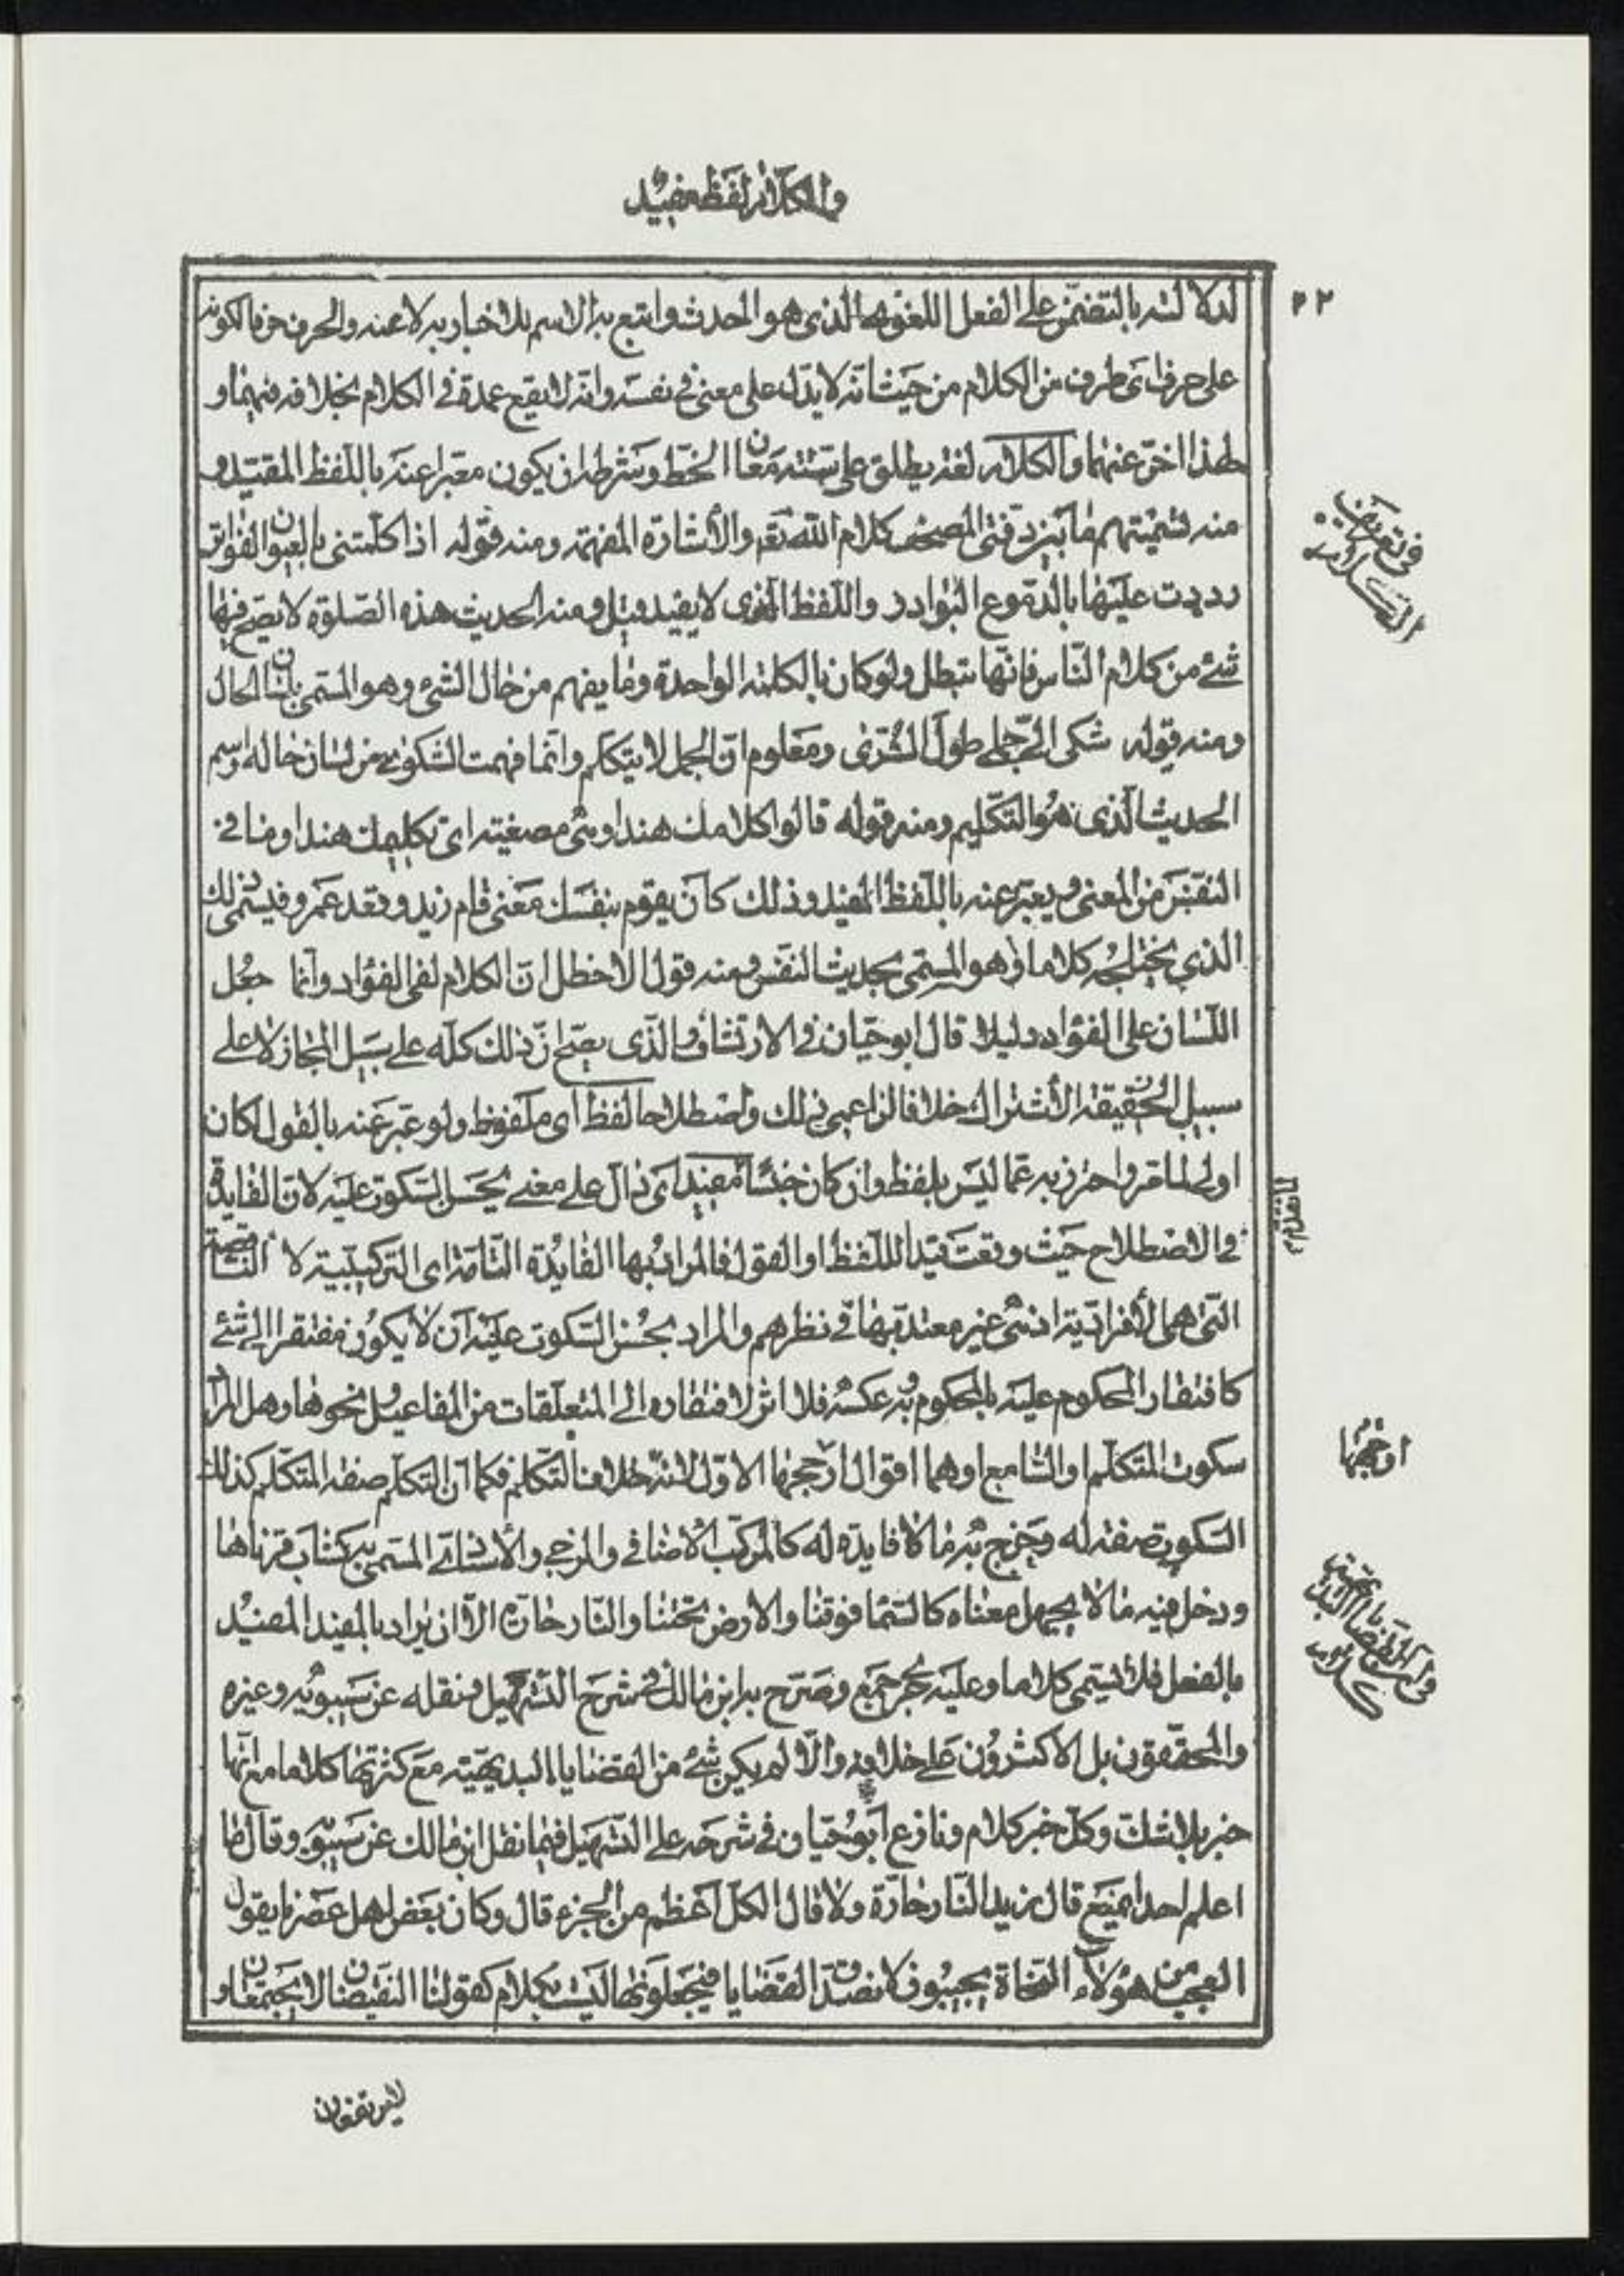 والكلام لفظ مفيد
٤٢
لدلالته بالتضمن على الفعل اللغوي الذي هو الحدث واتبع به الاسم للاخبار به لا عنه والحرف حرفا لكونه
على حرف اى طرف من الكلام من حيث انه لا يدل على معنى في نفسه وانه لا يقع عمدة في الكلام بخلافه فيهما و
لهذا اخر عنهما والكلام لغة يطلق على ستة معان الخط وشرطه ان يكون معبرا عنه باللفظ المقيد و
منه تسميتهم ما بين دفتي المصحف كلام الله تعم والأشارة المفهمة ومنه قوله اذا كلمتني بالعيون الفواتر
رددت عليها بالدموع البوادر واللفظ الذى لا يفيد قيل ومنه الحديث هذه الصلوة لا يصح فيها
شئ من كلام الناس فانها تبطل ولو كان بالكلمة الواحدة وما يفهم من حال الشئ وهو المسمى بلسان الحال
ومنه قوله شكى الى جملى طول السرى ومعلوم ان الجمل لا يتكلم وانما فهمت الشكوى من لسان حاله واسم
الحديث الذى هو التكليم ومنه قوله قالوا كلامك هندا وهى مصغية اى تكليمك هندا وما في
النفس من المعنى ويعبر عنه باللفظ المفيد وذلك كان يقوم بنفسك معنى قام زيد وقعد عمرو فيسمى ذلك
الذي يختلج كلاما وهو المسمى بحديث النفس ومنه قول الاخطل ان الكلام لفى الفؤاد وانما جعل
اللسان على الفؤاد دليلا قال ابو حيان في الارتشاف والذى يصح ان ذلك كله على سبيل المجاز لا على
سبيل الحقيقة الأشتراك خلافا لزاعمى ذلك واصطلاحا لفظ اى ملفوظ ولو عبر عنه بالقول لكان
اولى لما مر واحترز به عما ليس بلفظ وان كان جنسا مفيد اى دال على معنى يحسن السكوت عليه لان الفايدة
في الاصطلاح حيث وقعت قيدا للفظ او القول فالمراد بها الفايدة التامة اى التركيبية لا الناقصة
التى هى الأفرادية اذ هى غير معتد بها في نظرهم والمراد بحسن السكوت عليه ان لا يكون مفتقرا الى شئ
كافتقار المحكوم عليه بالمحكوم به وعكسه فلا اثر لافتقاره الى المتعلقات من المفاعيل ونحوها وهل المراد
سكوت المتكلم او السامع او هما اقوال ارجحها الاول لانه خلاف التكلم فكما ان التكلم صفة المتكلم كذلك
السكوت صفة له وخرج به ما لا فايدة له كالمركب الأضافي والمزجي والأسنادي المسمى به كشاب قرناها
ودخل فيه ما لا يجهل معناه كالسما فوقنا والارض تحتنا والنار حارة الا ان يراد بالمفيد المفيد
بالفعل فلا يسمى كلاما وعليه جرى جمع وصرح به ابن مالك في شرح التسهيل ونقله عن سيبويه وغيره
والمحققون بل الاكثرون على خلافه والا لم يكن شئ من القضايا البديهية مع كثرتها كلاما مع انها
خبر بلا شك وكل خبر كلام ونازع ابو حيان في شرحه على التسهيل فيما نقل ابن مالك عن سيبويه وقال ما
اعلم احدا يمنع قال زيد النار حارة ولا قال الكل اعظم من الجزء قال وكان بعض اهل عصرنا يقول
العجب من هؤلاء النحاة يجيبون لاصدق القضايا فيجعلونها ليست بكلام كقولنا النقيضان لا يجتمعان و
في تعريف
الكلام
ارجحها
لا يرتفعان